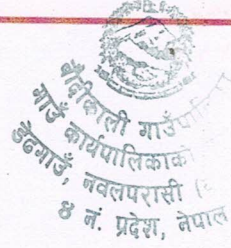 बौदीकाली गाउँपालिका
गाउँ कार्यपालिकाको
डेढगाउँ, नवलपरासी (
४ नं. प्रदेश, नेपाल